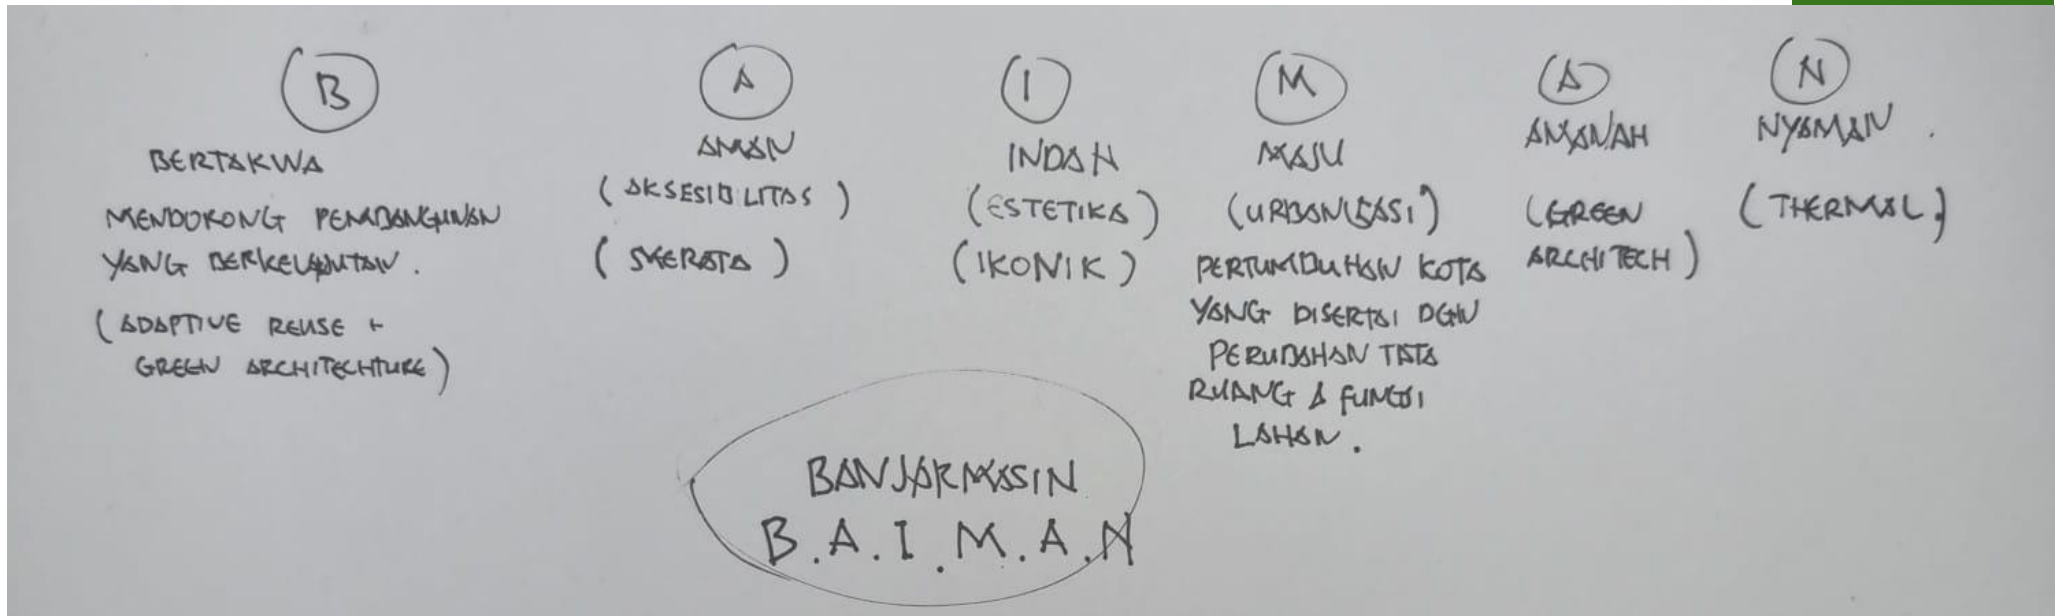 B
BERTAKWA
MENDORONG PEMBANGUNAN
YANG BERKELANJUTAN.
(ADAPTIVE REUSE +
GREEN ARCHITECHTURE)
A
AMAN
(AKSESIBILITAS)
I
INDAH
(ESTETIKA)
(IKONIK)
M
MAJU
(URBANISASI)
PERTUMBUHAN KOTA
YANG DISERTAI DGN
PERUBAHAN TATA
RUANG & FUNGSI
LAHAN.
A
AMANAH
(GREEN
ARCHITECH)
N
NYAMAN.
(THERMAL)
BANJARMASIN
B.A.I.M.A.N